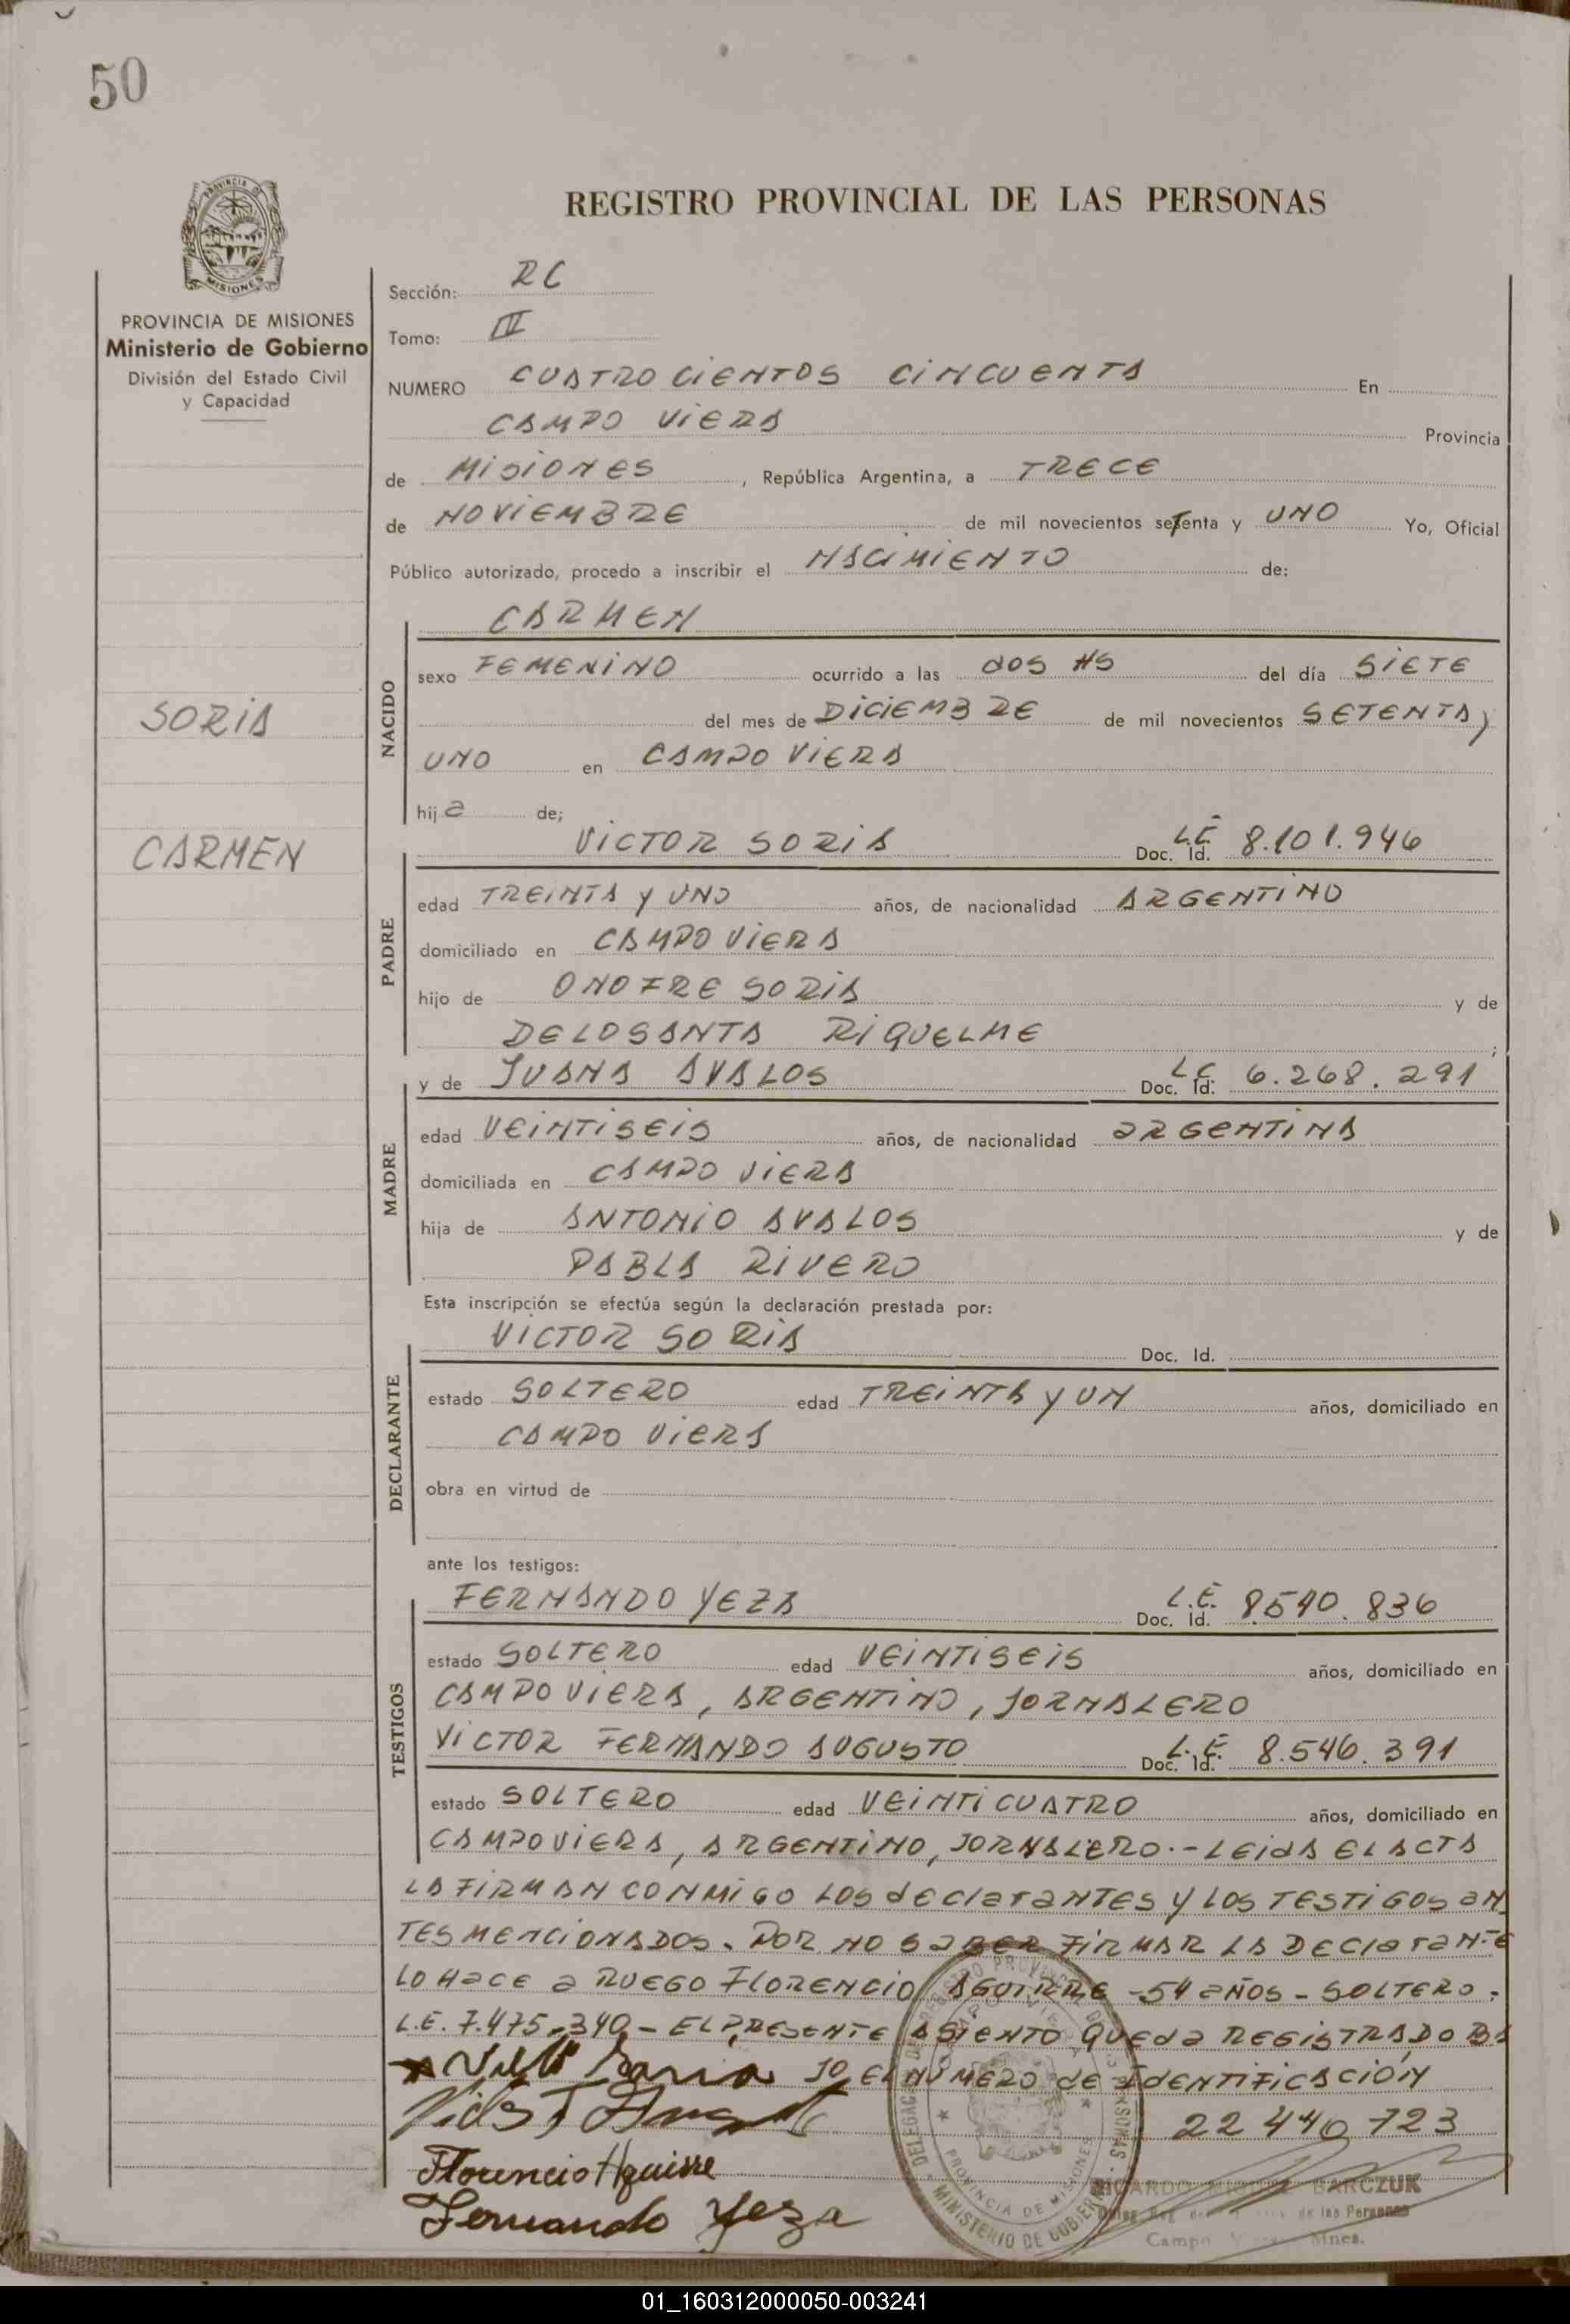 50
REGISTRO PROVINCIAL DE LAS PERSONAS
PROVINCIA DE MISIONES
PROVINCIA DE MISIONES
Ministerio de Gobierno
División del Estado Civil
y Capacidad
SORIA
CARMEN
Sección: RC
Tomo: III
NUMERO CUATROCIENTOS CINCUENTA En
CAMPO VIERA Provincia
de MISIONES, República Argentina, a TRECE
de NOVIEMBRE de mil novecientos seTenta y UNO Yo, Oficial
Público autorizado, procedo a inscribir el NACIMIENTO de:
CARMEN
NACIDO
sexo FEMENINO ocurrido a las DOS HS del día SIETE
del mes de DICIEMBRE de mil novecientos SETENTA y
UNO en CAMPO VIERA
hija de;
VICTOR SORIA Doc. Id. L.E 8.101.946
PADRE
edad TREINTA y UNO años, de nacionalidad ARGENTINO
domiciliado en CAMPO VIERA
hijo de ONOFRE SORIA y de
DELOSANTA RIQUELME;
y de JUANA AVALOS Doc. Id: LC 6.268.291
MADRE
edad VEINTISEIS años, de nacionalidad ARGENTINA
domiciliada en CAMPO VIERA
hija de ANTONIO AVALOS y de
PABLA RIVERO
Esta inscripción se efectúa según la declaración prestada por:
VICTOR SORIA Doc. Id.
DECLARANTE
estado SOLTERO edad TREINTA y UN años, domiciliado en
CAMPO VIERA
obra en virtud de
ante los testigos:
FERNANDO YEZA Doc. Id. L.E. 8540.836
TESTIGOS
estado SOLTERO edad VEINTISEIS años, domiciliado en
CAMPO VIERA, ARGENTINO, JORNALERO
VICTOR FERNANDO AUGUSTO Doc. Id. L.E. 8.546.391
estado SOLTERO edad VEINTICUATRO años, domiciliado en
CAMPO VIERA, ARGENTINO, JORNALERO.- LEIDA EL ACTA
LA FIRMAN CONMIGO LOS DECLARANTES Y LOS TESTIGOS AN
TES MENCIONADOS. POR NO SABER FIRMAR LA DECLARANTE
LO HACE A RUEGO FLORENCIO AGUIRRE -54 AÑOS - SOLTERO.
L.E. 7.475.340 - EL PRESENTE ASIENTO QUEDA REGISTRADO BA
JO EL NUMERO DE IDENTIFICACIÓN
22 440 723
Soria
Florencio Aguirre
Fernando Yeza
MINISTERIO DE GOBIERNO
PROVINCIA DE MISIONES
RICARDO MIGUEL BARCZUK
de las Personas
Campo Mnes.
01_160312000050-003241